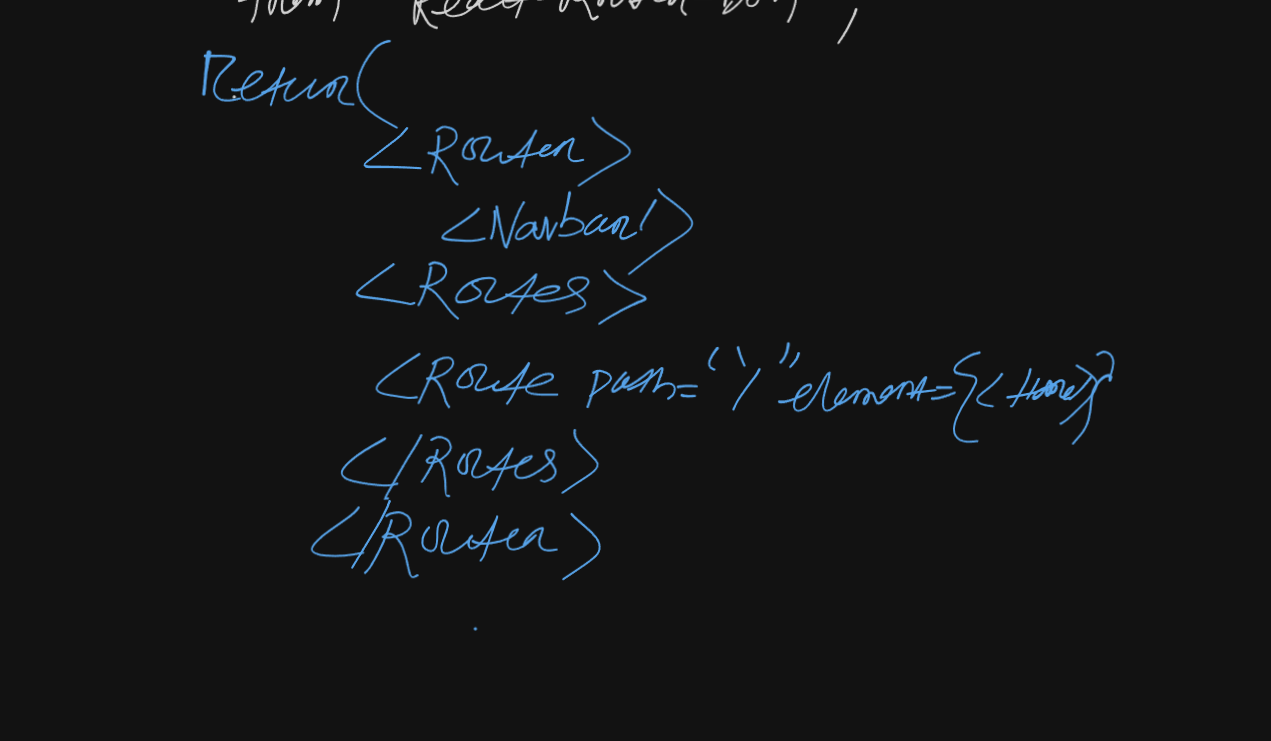 from "React-Router-Dom";
Return(
<Router>
<Navbar/>
<Routes>
<Route path="/" element={<Home>}
</Routes>
</Router>